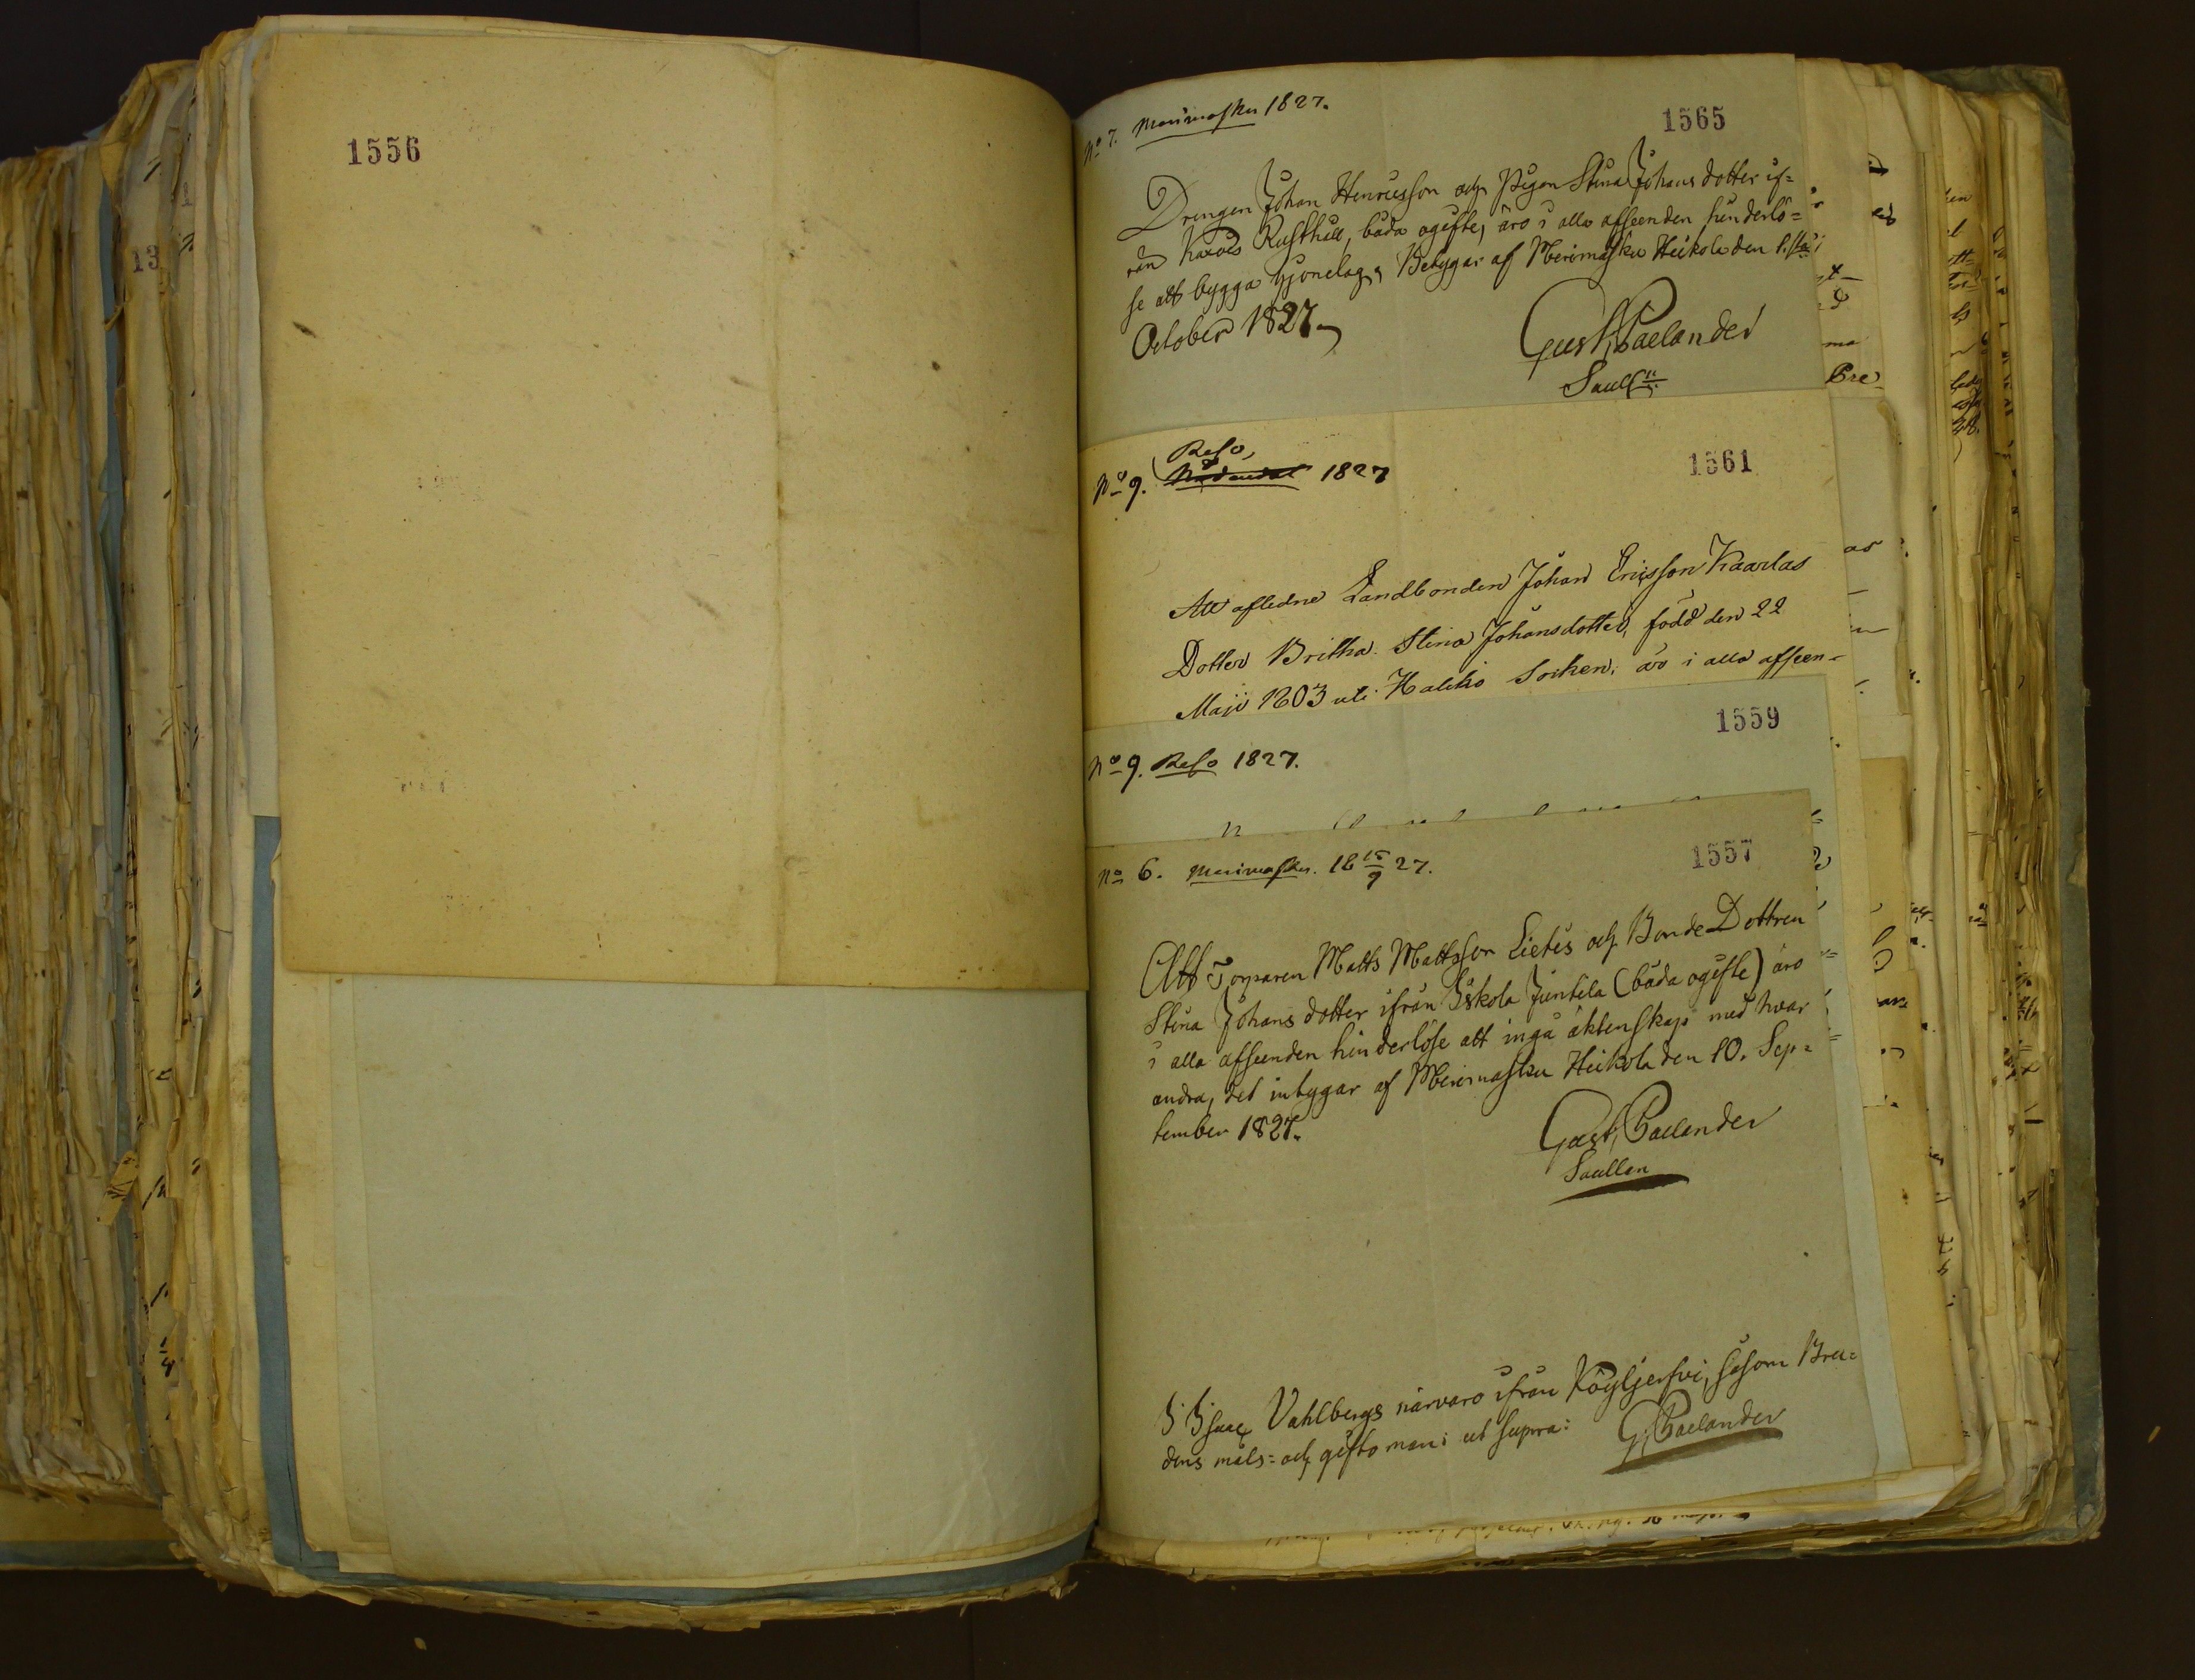 1556
13
No 7. Merimasku 1827.
1565
Drengen Johan Henricsson och Pigan Stina Johansdotter if=
rån Karois Rusthåll, båda ogifte, äro i alla afseenden hinderlö=
se att bygga hjonelag; Betygar af Merimasku Heikola den 1.sta
October 1827.
Gust. Paelander
No 9. Reso,
Nådendal 1827
1561
Att afledne Landbonden Johan Ericsson Kaarlas
Dotter Britha Stina Johansdotter, född den 22
Maji 1803 uti Haliko Socken, är i alla afseen-
1559
No 9. Reso 1827.
1557
No 6. Merimasku. 18 15/9 27.
Att Torparen Matts Mattsson Lietis och BondeDottren
Stina Johansdotter ifrån Iskola Juntila (båda ogifte) äro
i alla afseenden hinderlöse att ingå äktenskap med hvar
andra, det intygar af Merimasku Heikola den 10. Sep=
tember 1827.
Gust. Paelander
I Isaac Vahlbergs närvaro ifrån Köyljersvi, såsom Bru=
dens måls= och giftoman; ut supra:
G. Paelander